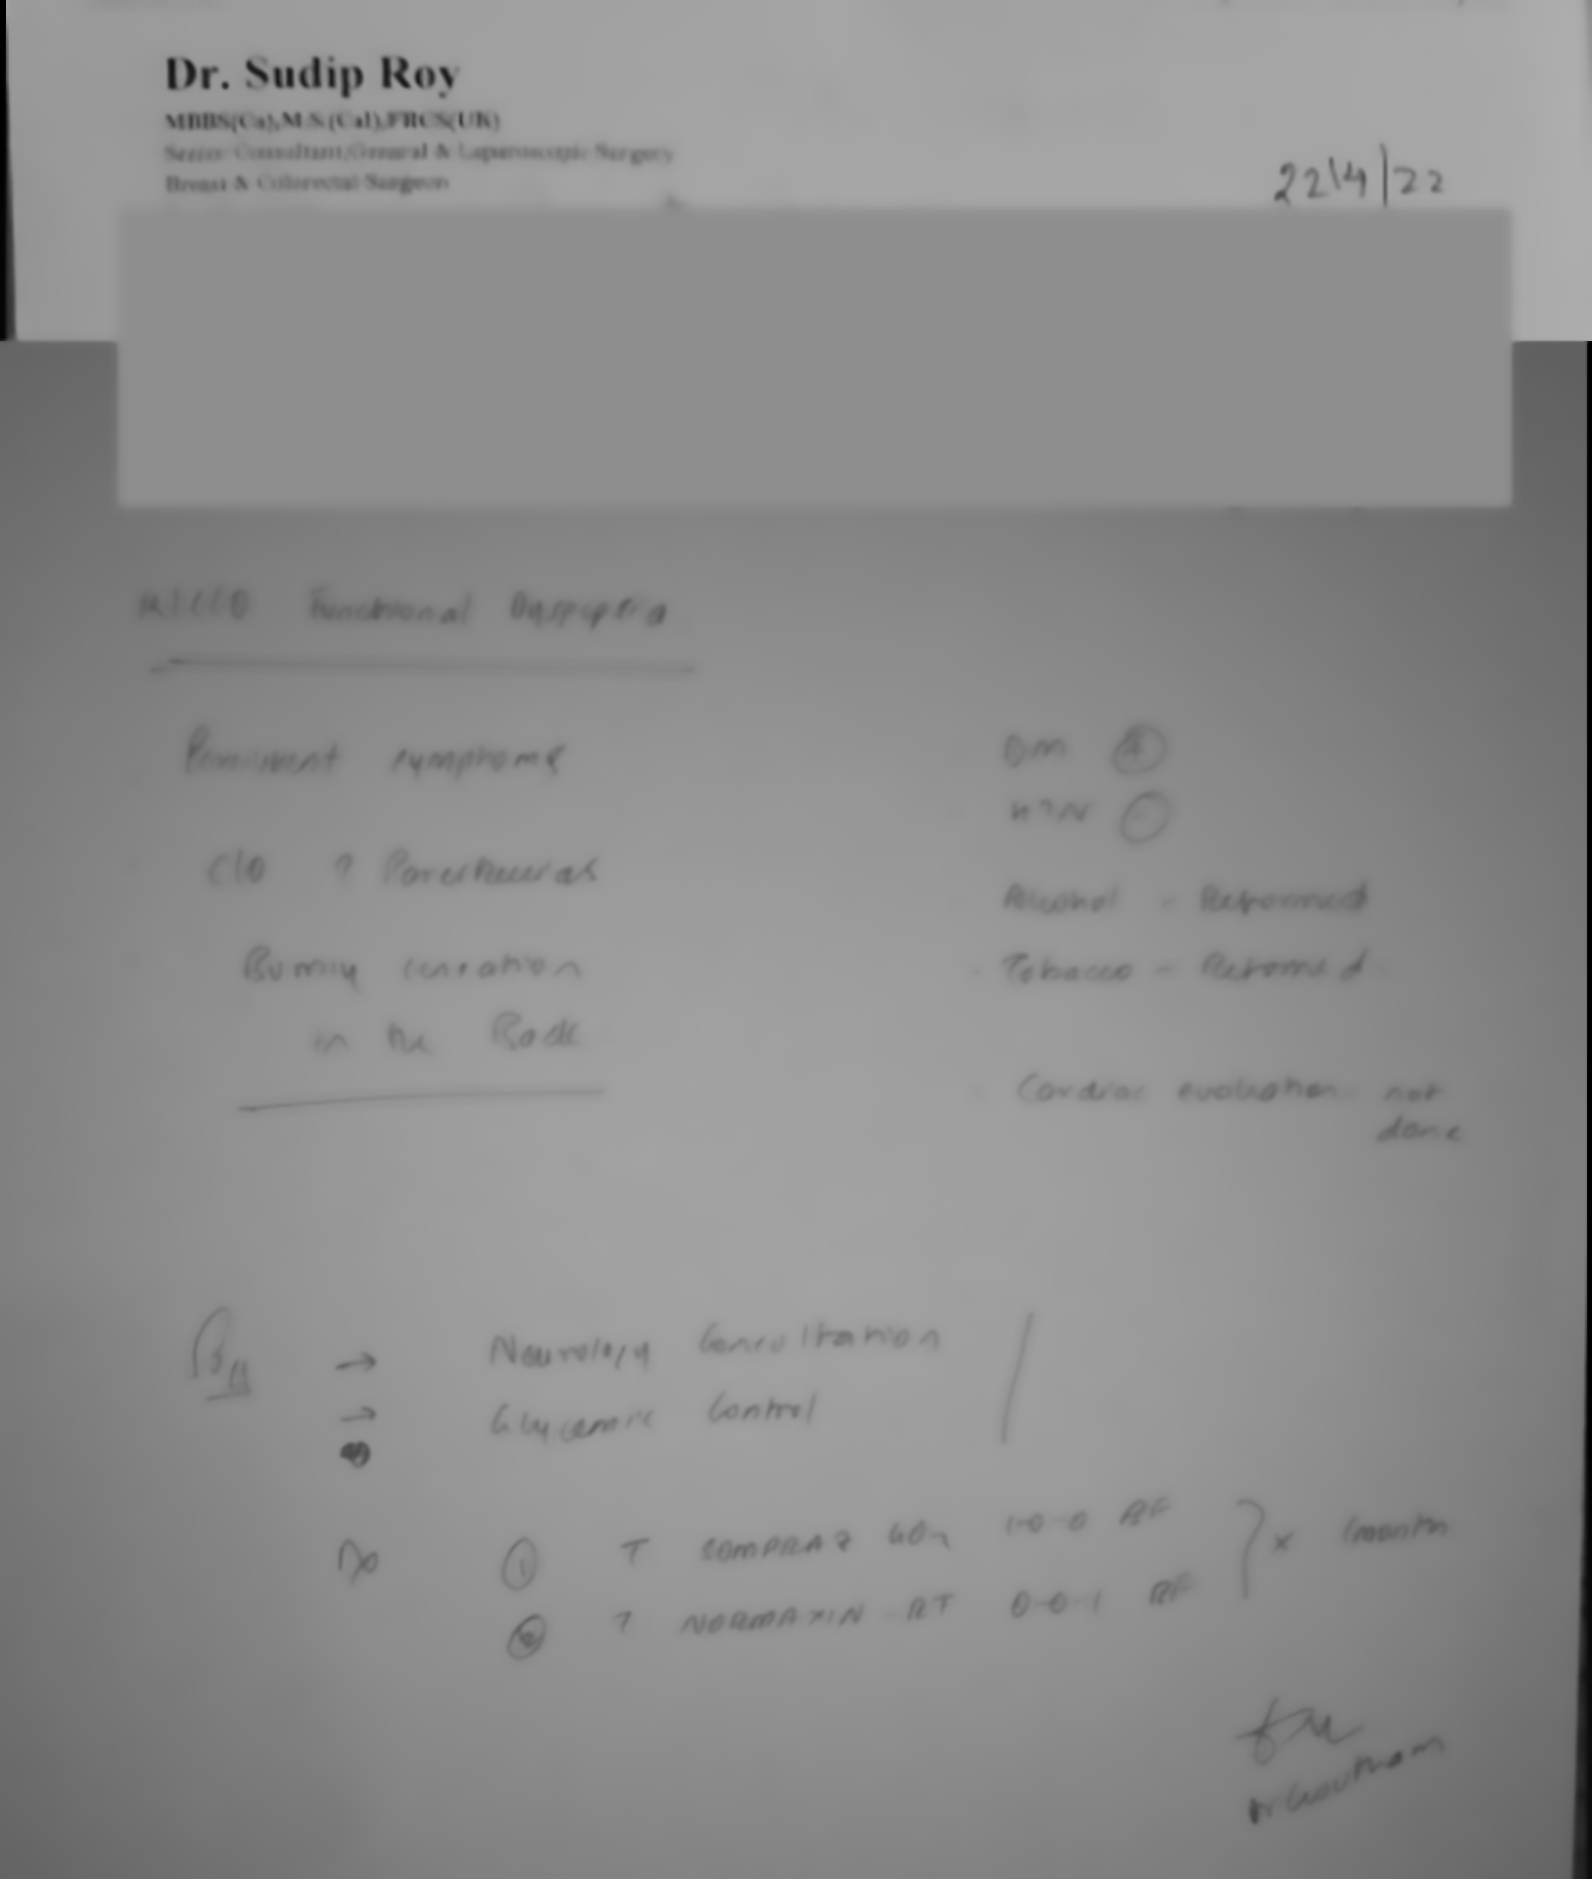 Dr. Sudip Roy
MBBS(Ca),M.S.(Cal),FRCS(UK)
Senior Consultant,General & Laparoscopic Surgery
Breast & Colorectal Surgeon
22/4/22
Functional Dyspepsia
Persistent symptoms
C/O ? Paresthesias
Burning sensation
in the Back
DM +
HTN -
Alcohol - Reformed
Tobacco - Reformed
Cardiac evaluation not
done
→ Neurology Consultation
→ Glycemic Control
① T SOMPRAZ 40 1-0-0 BF
② T NORMAXIN RT 0-0-1 BF
} x 1month